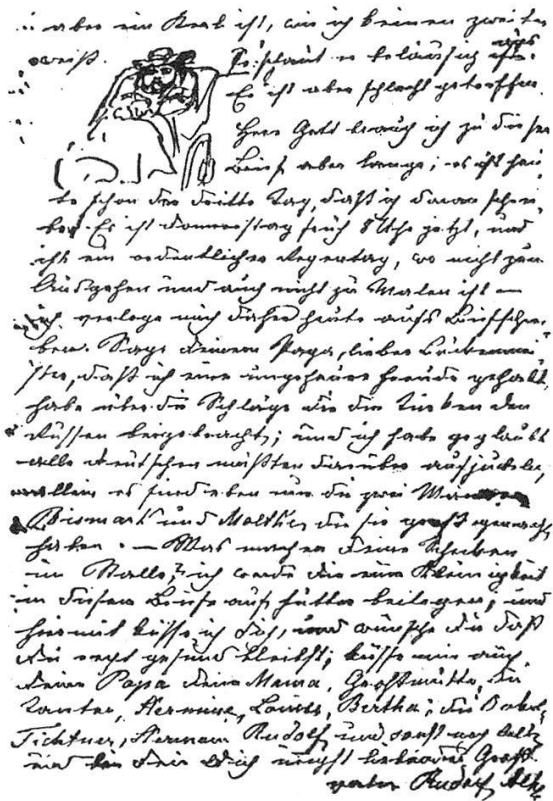 aber ein Kerl ist, wie ich keinen zweiten
weiß. So schaut er beiläufig aus.
Es ist aber schlecht getroffen.
Herr Gott brauch ich zu diesem
Brief aber lange; es ist heu
te schon der dritte Tag, daß ich daran schrei
be. Es ist Donnerstag früh 8 Uhr jetzt, und
ist ein ordentlicher Regentag, wo nicht zum
Ausgehen und auch nicht zu Malen ist —
ich verlege mich daher heute aufs Briefschrei
ben. Sage deinem Papa, lieber
daß ich eine ungeheure Freude gehabt
habe über die Schläge die die Türken den
Russen beigebracht; und ich habe geglaubt
alle Deutschen müßten darüber aufjubeln,
allein es sind eben nur die zwei
Bismark und Moltke, die sie groß gemacht
haben. — Was machen deine
im Stalle? ich werde dir eine Kleinigkeit
in diesem Briefe auf Futter beilegen, und
hiermit küsse ich dich, und wünsche dir daß
du recht gesund bleibst; küsse mir auch
deine Papa deine Mama, Großmutter, die
Tanten, Hermine, Louise, Bertha, die
Tichtner, Herman Rudolf und sonst noch
und den dein dich innigst liebender Groß
vater Rudolf Alt